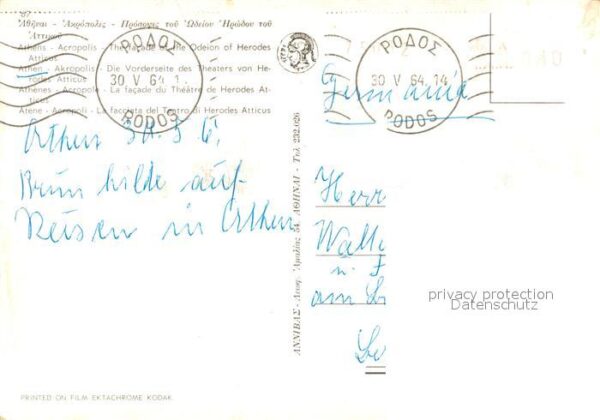 Ἀθῆναι - Ἀκρόπολις - Πρόσοψις τοῦ Ὠδείου Ἡρώδου τοῦ
Ἀττικοῦ
Athens - Acropolis - The façade of the Odeion of Herodes
Atticus
Athen - Akropolis - Die Vorderseite des Theaters von He-
rodes Atticus
Athenes - Acropole - La façade du Théâtre de Herodes At-
ticus
Atene - Acropoli - La facciata del Teatro di Herodes Atticus
ΡΟΔΟΣ
30 V 64
RODOS
ΡΟΔΟΣ
30 V 64.14
RODOS
Germania
Athen 30.5.6
Brünhilde auf
Reisen in Athen
ΑΝΝΙΒΑΣ - Λεωφ. Ἀμαλίας 54, ΑΘΗΝΑΙ - Τηλ. 232.026
Herr
Walte
u. F
am
privacy protection
Datenschutz
PRINTED ON FILM EKTACHROME KODAK